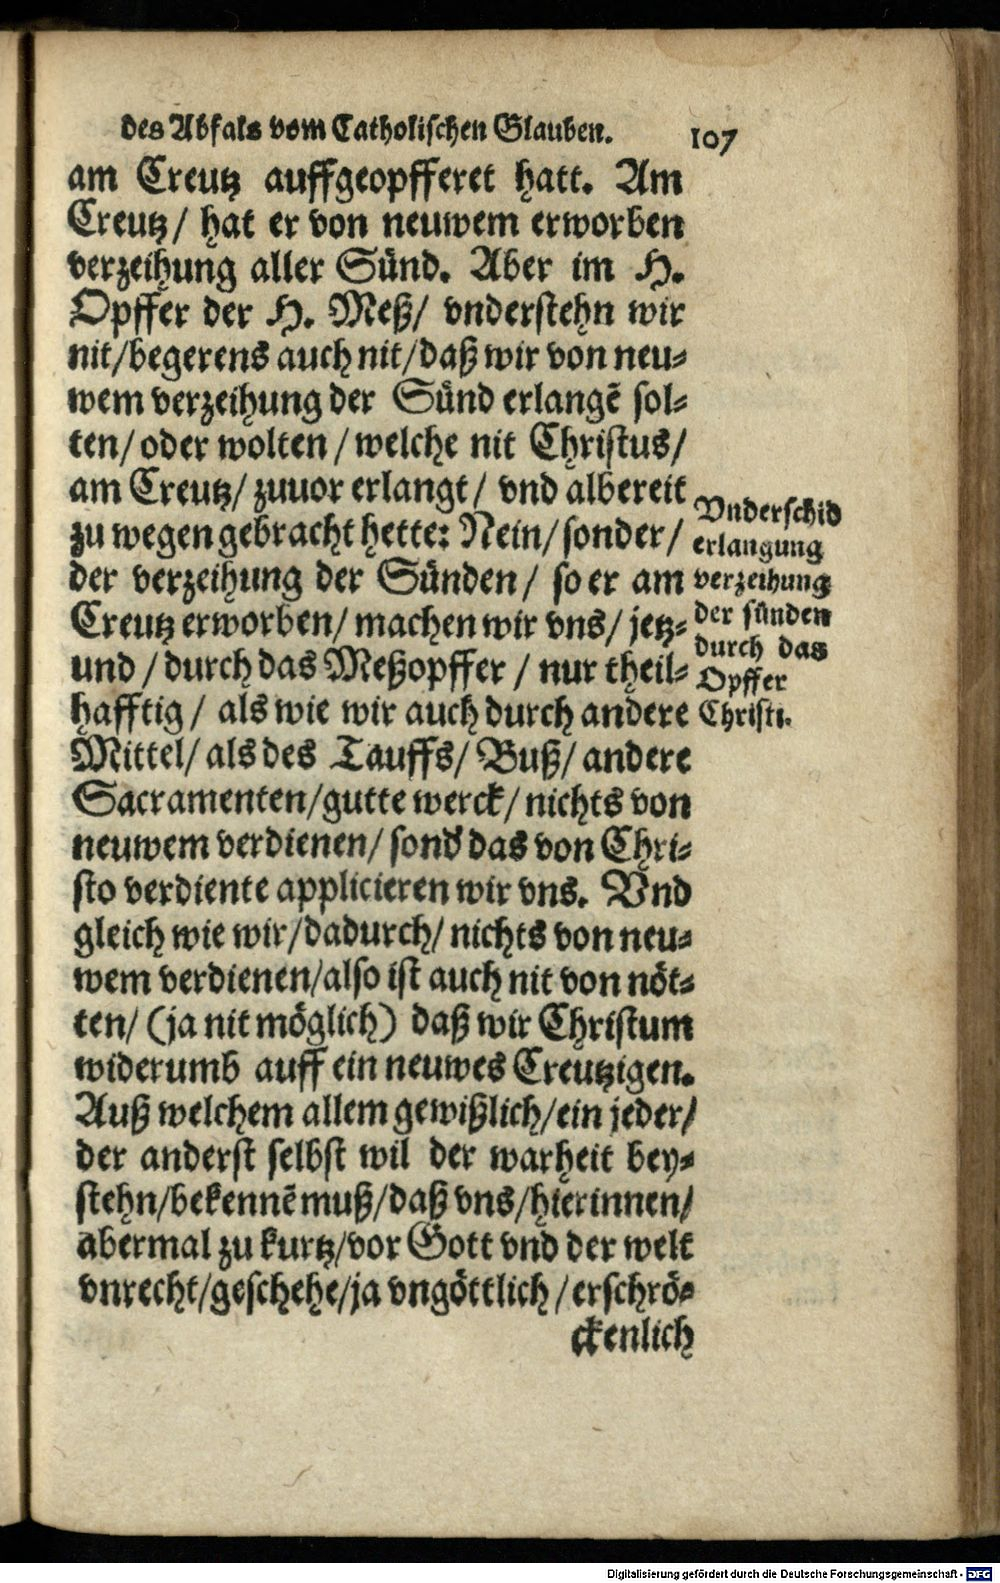 des Abfals vom Catholischen Glauben. 107
am Creutz auffgeopfferet hatt. Am
Creutz/ hat er von neuwem erworben
verzeihung aller Sünd. Aber im H.
Opffer der H. Meß/ vnderstehn wir
nit/begerens auch nit/daß wir von neu-
wem verzeihung der Sünd erlangẽ sol-
ten/ oder wolten / welche nit Christus/
am Creutz/ zuuor erlangt / vnd albereit
zu wegen gebracht hette: Nein/ sonder/
der verzeihung der Sünden/ so er am
Creutz erworben/ machen wir vns/ jetz-
und / durch das Meßopffer / nur theil-
hafftig/ als wie wir auch durch andere
Mittel/ als des Tauffs/ Buß/ andere
Sacramenten/gutte werck/ nichts von
neuwem verdienen/ sond' das von Chri-
sto verdiente applicieren wir vns. Vnd
gleich wie wir/dadurch/ nichts von neu-
wem verdienen/also ist auch nit von nöt-
ten/ (ja nit möglich) daß wir Christum
widerumb auff ein neuwes Creutzigen.
Auß welchem allem gewißlich/ein jeder/
der anderst selbst wil der warheit bey-
stehn/bekennẽ muß/daß vns/hierinnen/
abermal zu kurtz/vor Gott vnd der welt
vnrecht/geschehe/ja vngöttlich/ erschrö-
ckenlich
Vnderschid
erlangung
verzeihung
der sünden
durch das
Opffer
Christi.
Digitalisierung gefördert durch die Deutsche Forschungsgemeinschaft - DFG